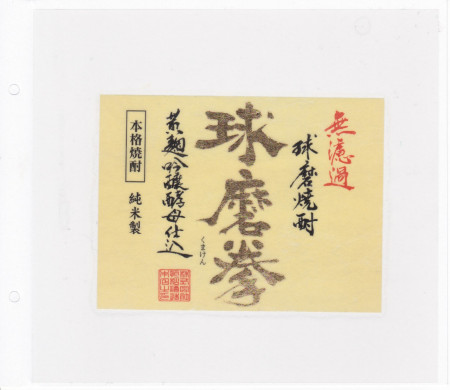 無濾過
球磨焼酎
球磨拳
くまけん
黄麹吟醸酵母仕込
本格焼酎
純米製